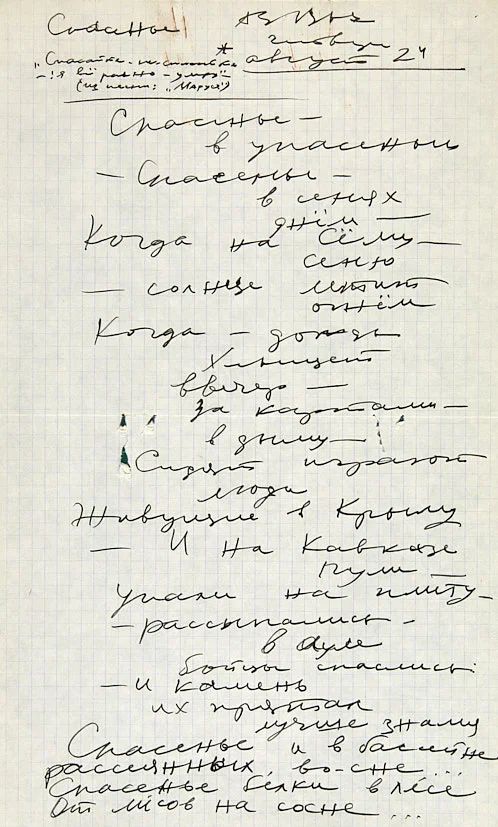 Спасенье
август 24
"Спасайте - не спасайте
- ! я всё равно - умру"
(из песни: "Маруся")
Спасенье -
в спасеньи
- Спасенье -
в сенях
днём -
Когда на Сёму -
сеню
- солнце
огнём
Когда - дождь
Хлыщет
ввечер -
за картами -
в дыму -
Сидят играют
люди
Живущие в Крыму
- И на Кавказе
пули -
упали на плиту -
- рассыпались -
в ауле
бойцы спаслись:
- И камень
их прятал
лучше знамя
Спасенье и в бассейне
рассеянных, во-сне...
Спасенье белки в лесе
От лисов на сосне...